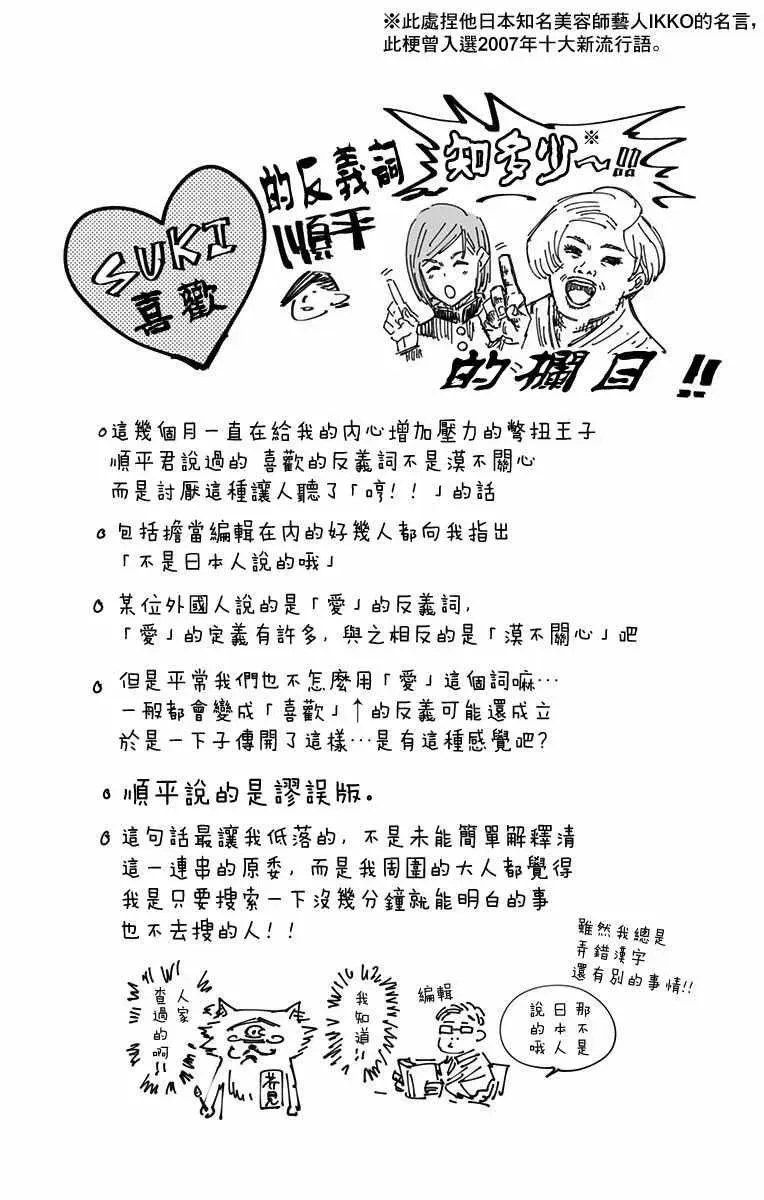 ※此處捏他日本知名美容師藝人IKKO的名言，
此梗曾入選2007年十大新流行語。
SUKI
喜歡
的反義詞
順平
知多少～!!!
※
的欄目!!
這幾個月一直在給我的內心增加壓力的彆扭王子
順平君說過的 喜歡的反義詞不是漠不關心
而是討厭這種讓人聽了「哼！！」的話
包括擔當編輯在內的好幾人都向我指出
「不是日本人說的哦」
某位外國人說的是「愛」的反義詞，
「愛」的定義有許多，與之相反的是「漠不關心」吧
但是平常我們也不怎麼用「愛」這個詞嘛…
一般都會變成「喜歡」↑的反義可能還成立
於是一下子傳開了這樣…是有這種感覺吧？
順平說的是謬誤版。
這句話最讓我低落的，不是未能簡單解釋清
這一連串的原委，而是我周圍的大人都覺得
我是只要搜索一下沒幾分鐘就能明白的事
也不去搜的人！！
雖然我總是
弄錯漢字
還有別的事情!!
人家
查過的啊!!
芥見
我知道!!
編輯
那不是
日本人
說的哦